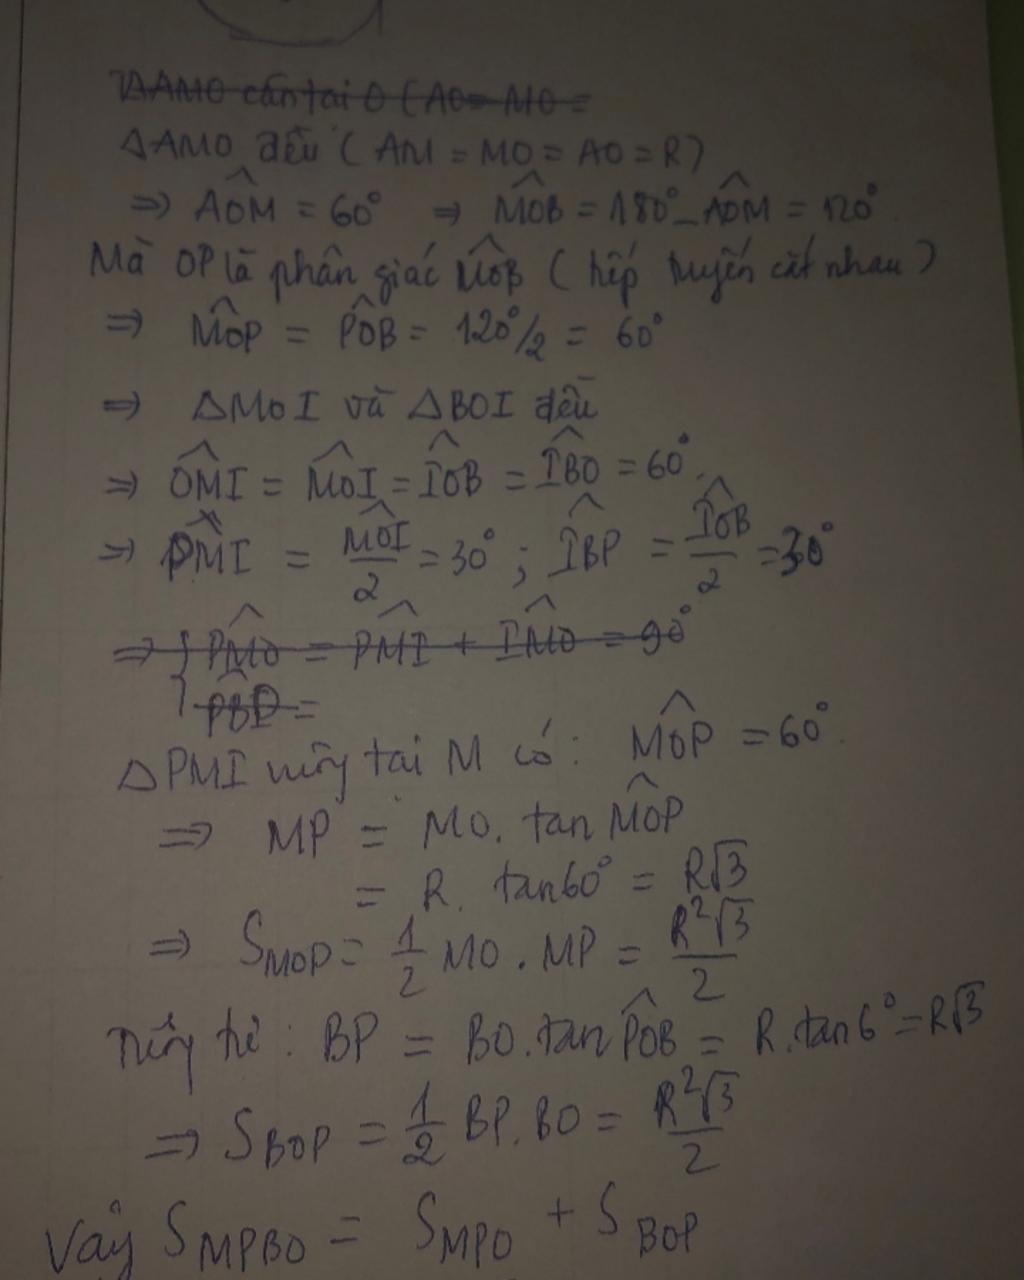 ΔAMO cân tại O (AO = MO =
ΔAMO đều (AM = MO = AO = R)
⇒ AÔM = 60° ⇒ MÔB = 180° - AÔM = 120°
Mà OP là phân giác MÔB (tiếp tuyến cắt nhau)
⇒ MÔP = PÔB = 120°/2 = 60°
⇒ ΔMOI và ΔBOI đều
⇒ OM̂I = MÔI = IÔB = IB̂O = 60°.
⇒ PM̂I = MÔI/2 = 30° ; IB̂P = IÔB/2 = 30°
⇒ { PM̂O = PM̂I + IM̂O = 90°
PB̂P =
ΔPMI vuông tại M có: MÔP = 60°.
⇒ MP = MO. tan MÔP
= R. tan60° = R√3
⇒ S_MOP = 1/2 MO . MP = R²√3/2
Tương tự : BP = BO. tan PÔB = R. tan6° = R√3
⇒ S_BOP = 1/2 BP. BO = R²√3/2
Vậy S_MPBO = S_MPO + S_BOP